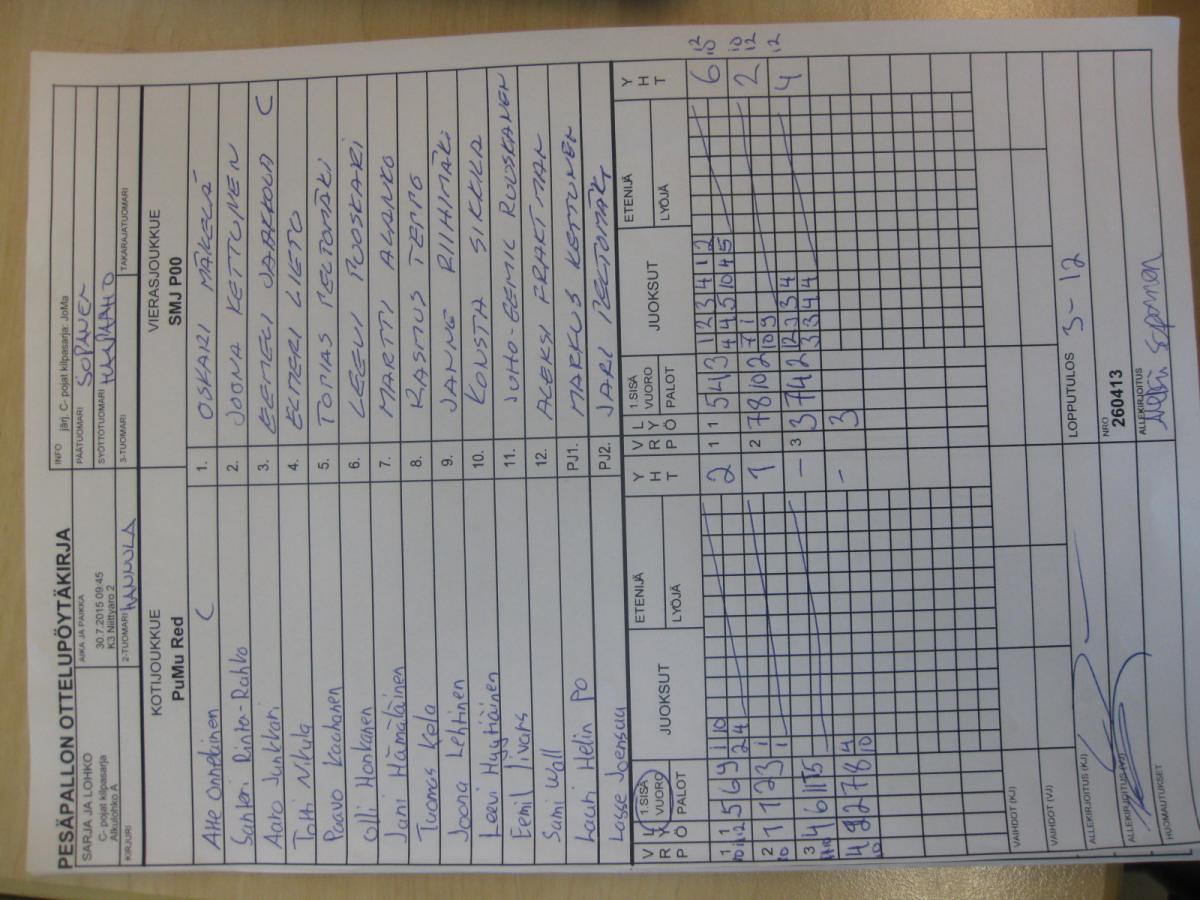 PESÄPALLON OTTELUPÖYTÄKIRJA
SARJA JA LOHKO
C- pojat kilpasarja
Alkulohko A
AIKA JA PAIKKA
30.7.2015 09:45
K3 Niittyaro 2
INFO järj. C- pojat kilpasarja: JoMa
PÄÄTUOMARI SOPANEN
SYÖTTÖTUOMARI
KIRJURI
2-TUOMARI HANNULA
3-TUOMARI
TAKARAJATUOMARI
KOTIJOUKKUE
PuMu Red
VIERASJOUKKUE
SMJ P00
Atte Onnelainen C
1. OSKARI MÄKELÄ
Santeri Rinta-Rahko
2. JOONA KETTUNEN
Aato Junkkari
3. EEMELI JAAKKOLA C
Totti
4. ELMERI LIETO
Paavo Kauhanen
5. TOMAS PELTOMÄKI
Olli Honkanen
6. LEEVI PUOSKARI
Jani Hämäläinen
7. MARTTI ALANKO
Tuomas Kela
8. RASMUS TEPPO
Joona Lehtinen
9. JANNE RIIHIMÄKI
Leevi Hyytiäinen
10. KONSTA SIKKILA
Eemil Iivars
11. JUHO-EEMIL RUUSKANEN
Sami Wall
12. ALEKSI PRAKTMAN
Lauri Helin PO
PJ1. MARKUS KETTUNEN
Lasse Joensuu
PJ2. JARI PELTOMÄKI
V R P L Y Ö 1.SISÄ VUORO PALOT JUOKSUT ETENIJÄ LYÖJÄ Y H T
V R P L Y Ö 1.SISÄ VUORO PALOT JUOKSUT ETENIJÄ LYÖJÄ Y H T
1 1 5 6 9 1 10 2
2 4
1 1 5 4 3 1 2 3 4 1 2 6
4 4 5 10 4 5
2 1 1 2 3 1 1
1
2 7 8 10 2 7 1 2
10 9
3 4 6 11 5 -
3 3 7 4 2 2 3 4 4
3 4 4
4 9 2 7 8 4 -
10
3
VAIHDOT (KJ)
VAIHDOT (VJ)
LOPPUTULOS 3-12
ALLEKIRJOITUS (KJ)
NRO
260413
ALLEKIRJOITUS (VJ)
ALLEKIRJOITUS
HUOMAUTUKSET